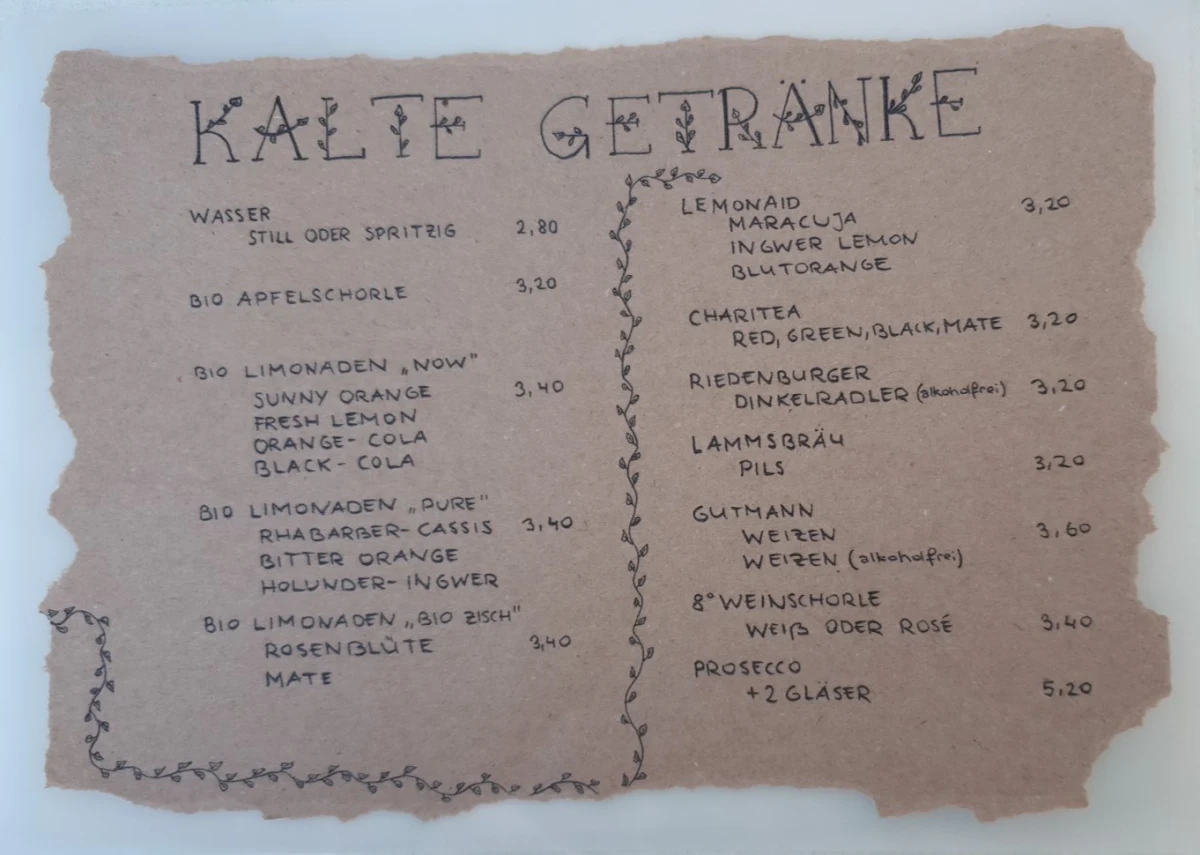 KALTE GETRÄNKE
WASSER
STILL ODER SPRITZIG 2,80
BIO APFELSCHORLE 3,20
BIO LIMONADEN „NOW"
SUNNY ORANGE 3,40
FRESH LEMON
ORANGE- COLA
BLACK- COLA
BIO LIMONADEN „PURE"
RHABARBER- CASSIS 3,40
BITTER ORANGE
HOLUNDER- INGWER
BIO LIMONADEN „BIO ZISCH"
ROSENBLÜTE 3,40
MATE
LEMONAID 3,20
MARACUJA
INGWER LEMON
BLUTORANGE
CHARITEA
RED, GREEN, BLACK, MATE 3,20
RIEDENBURGER
DINKELRADLER (alkoholfrei) 3,20
LAMMSBRÄU
PILS 3,20
GUTMANN
WEIZEN 3,60
WEIZEN (alkoholfrei)
8° WEINSCHORLE
WEIß ODER ROSÉ 3,40
PROSECCO
+2 GLÄSER 5,20